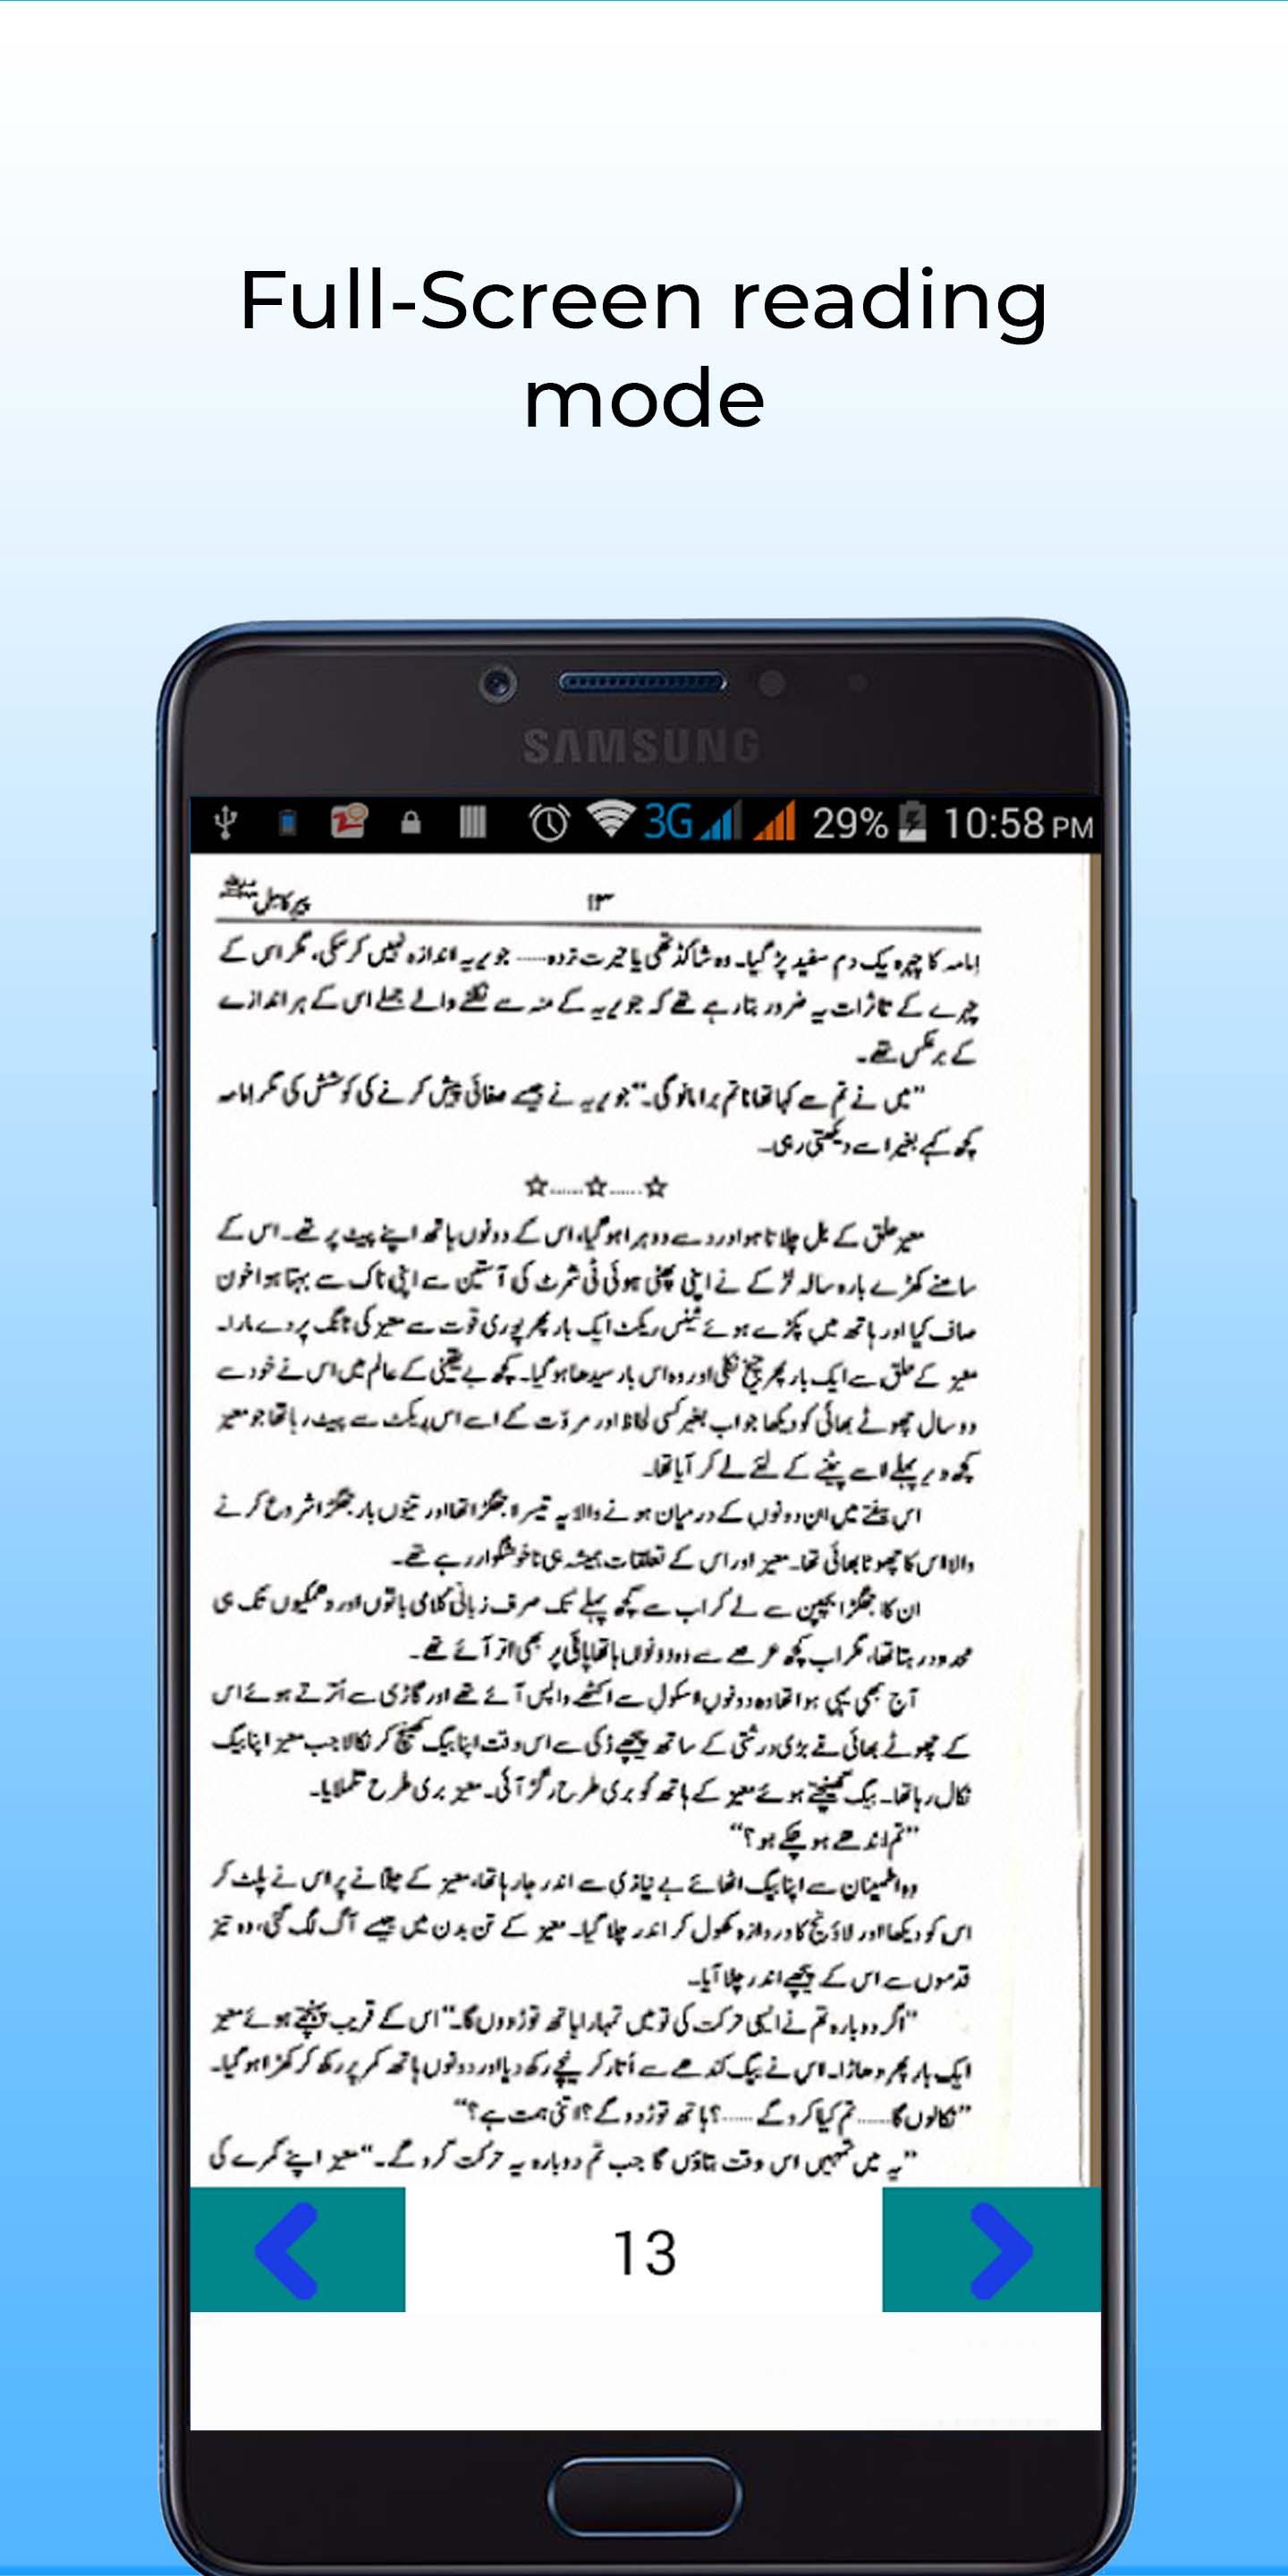 Full-Screen reading
mode
SAMSUNG
3G 29% 10:58 PM
پیرِ کامل ﷺ ۱۳
امامہ کا چہرہ یک دم سفید پڑ گیا۔ وہ شاکڈ تھی یا حیرت زدہ...... جویریہ اندازہ نہیں کر سکی، مگر اس کے
چہرے کے تاثرات یہ ضرور بتا رہے تھے کہ جویریہ کے منہ سے نکلنے والے جملے اس کے ہر اندازے
کے برعکس تھے۔
”میں نے تم سے کہا تھا نا تم برا مانو گی۔“ جویریہ نے جیسے صفائی پیش کرنے کی کوشش کی مگر امامہ
کچھ کہے بغیر اسے دیکھتی رہی۔
☆......☆......☆
معیز حلق کے بل چلاتا ہوا درد سے دوہرا ہو گیا، اس کے دونوں ہاتھ اپنے پیٹ پر تھے۔ اس کے
سامنے کھڑے بارہ سالہ لڑکے نے اپنی پھٹی ہوئی ٹی شرٹ کی آستین سے اپنی ناک سے بہتا ہوا خون
صاف کیا اور ہاتھ میں پکڑے ہوئے ٹینس ریکٹ ایک بار پھر پوری قوت سے معیز کی ٹانگ پر دے مارا۔
معیز کے حلق سے ایک بار پھر چیخ نکلی اور وہ اس بار سیدھا ہو گیا۔ کچھ بے یقینی کے عالم میں اس نے خود سے
دو سال چھوٹے بھائی کو دیکھا جو اب بغیر کسی لحاظ اور مروّت کے اسے اس ریکٹ سے پیٹ رہا تھا جو معیز
کچھ دیر پہلے اسے پیٹنے کے لئے لے کر آیا تھا۔
اس ہفتے میں ان دونوں کے درمیان ہونے والا یہ تیسرا جھگڑا تھا اور تینوں بار جھگڑا شروع کرنے
والا اس کا چھوٹا بھائی تھا۔ معیز اور اس کے تعلقات ہمیشہ ہی ناخوشگوار رہے تھے۔
ان کا جھگڑا بچپن سے لے کر اب سے کچھ پہلے تک صرف زبانی کلامی باتوں اور دھمکیوں تک ہی
محدود رہتا تھا، مگر اب کچھ عرصے سے وہ دونوں ہاتھا پائی پر بھی اتر آئے تھے۔
آج بھی یہی ہوا تھا وہ دونوں اسکول سے اکٹھے واپس آئے تھے اور گاڑی سے اُترتے ہوئے اس
کے چھوٹے بھائی نے بڑی درشتی کے ساتھ پیچھے ڈگی سے اس وقت اپنا بیگ کھینچ کر نکالا جب معیز اپنا بیگ
نکال رہا تھا۔ بیگ کھینچتے ہوئے معیز کے ہاتھ کو بری طرح رگڑ آئی۔ معیز بری طرح تلملایا۔
”تم اندھے ہو چکے ہو؟“
وہ اطمینان سے اپنا بیگ اٹھائے بے نیازی سے اندر جا رہا تھا، معیز کے چلانے پر اس نے پلٹ کر
اس کو دیکھا اور لاؤنج کا دروازہ کھول کر اندر چلا گیا۔ معیز کے تن بدن میں جیسے آگ لگ گئی، وہ تیز
قدموں سے اس کے پیچھے اندر چلا آیا۔
”اگر دوبارہ تم نے ایسی حرکت کی تو میں تمہارا ہاتھ توڑ دوں گا۔“ اس کے قریب پہنچتے ہوئے معیز
ایک بار پھر دھاڑا۔ اس نے بیگ کندھے سے اُتار کر نیچے رکھ دیا اور دونوں ہاتھ کمر پر رکھ کر کھڑا ہو گیا۔
”نکالوں گا...... تم کیا کرو گے......؟ ہاتھ توڑ دو گے؟ اتنی ہمت ہے؟“
”یہ میں تمہیں اس وقت بتاؤں گا جب تم دوبارہ یہ حرکت کرو گے۔“ معیز اپنے کمرے کی
13